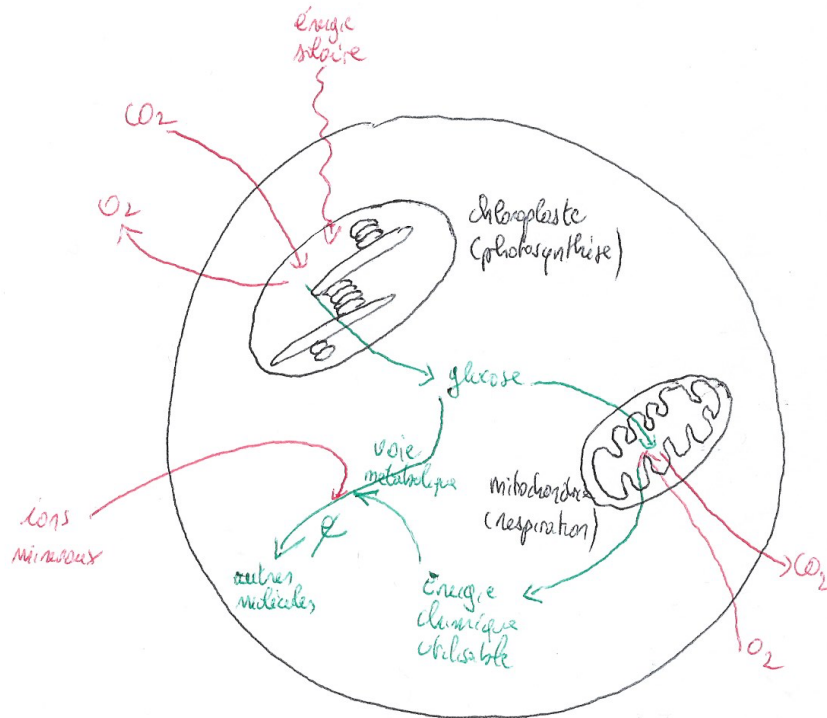 énergie
solaire
CO2
O2
chloroplaste
(photosynthèse)
glucose
voie
métabolique
mitochondrie
(respiration)
ions
minéraux
autres
molécules
Énergie
chimique
utilisable
CO2
O2